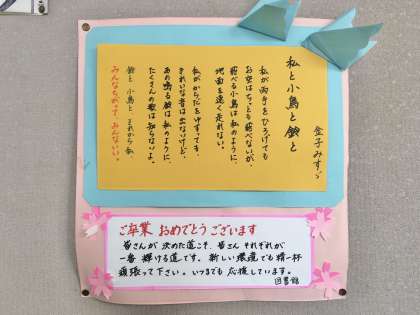 私と小鳥と鈴と
金子みすゞ
私が両手をひろげても
お空はちっとも飛べないが、
飛べる小鳥は私のように、
地面を速く走れない。
私がからだをゆすっても、
きれいな音は出ないけど、
あの鳴る鈴は私のように、
たくさんの唄は知らないよ。
鈴と、小鳥と、それから私
みんなちがって、みんないい。
ご卒業 おめでとうございます
皆さんが 決めた道こそ、皆さん それぞれが
一番 輝ける道です。新しい環境でも精一杯
頑張って下さい。いつまでも 応援しています。
図書館